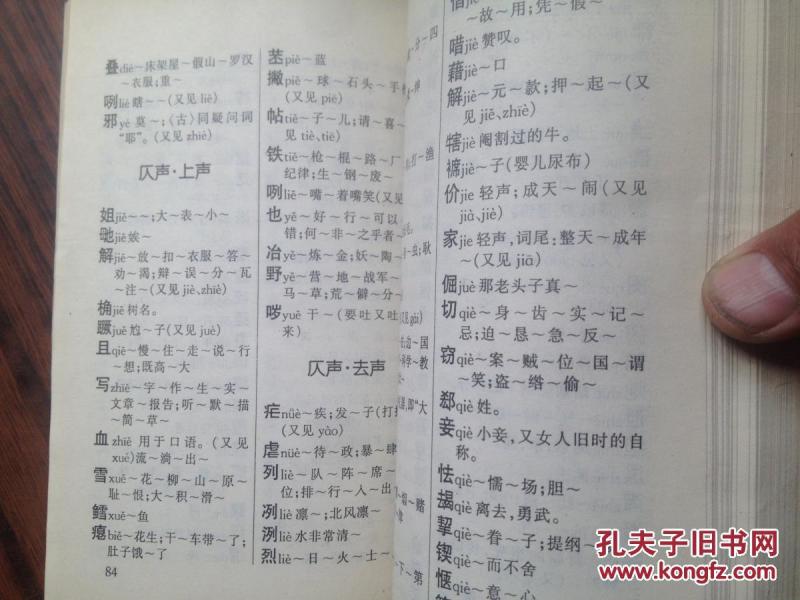 叠dié～床架屋～假山～罗汉
～衣服;重～
咧lié瞎～～(又见liě)
邪yé莫～;《古》同疑问词
“耶”。(又见zhié)
仄声·上声
姐jiě～～;大～表～小～
毑jiě娭～
解jiě～放～扣～衣服～答～
劝～渴;辩～误～分～瓦
～注～(又见jiè、zhiè)
桷jiě树名。
蹶juě尥～子(又见jué)
且qiě～慢～住～走～说～行
～想;既高～大
写zhiě～字～作～生～实～
文章～报告;听～默～描
～简～草～
血zhiě用于口语。(又见
xuě)流～滴～出～
雪xuě～花～柳～山～原～
耻～恨;大～积～滑～
鳕xuě～鱼
瘪biě～花生;干～车带～了;
肚子饿～了
84
苤piě～蓝
撇piě～球～石头～手
(又见piē)
帖tiě～子～儿;请～喜～
见tiē、tiè)
铁tiě～枪～棍～路～厂
纪律;生～钢～废～
咧liě～嘴～着嘴笑(又见
也yě～好～行～可以～
错;何～非～之乎者～
冶yě～炼～金～妖～陶～
野yě～营～地～战军～
马～草;荒～僻～分～
哕yuě干～(要吐又吐
来)
仄声·去声
疟nüè～疾;发～子(打摆
(又见yào)
虐nüè～待～政;暴～肆
列liè～队～阵～席～
位;排～行～人～出～
冽liè凛～;北风凛～
洌liè水非常清～
烈liè～日～火～士～
～故～用;凭～假～
唶jiè赞叹。
藉jiè～口
解jiè～元～款;押～起～(又
见jiě、zhiè)
犗jiè阉割过的牛。
褯jiè～子(婴儿尿布)
价jie轻声;成天～闹(又见
jià、jiè)
家jie轻声,词尾:整天～成年
～(又见jiā)
倔juè那老头子真～
切qiè～身～齿～实～记～
忌;迫～恳～急～反～
窃qiè～案～贼～位～国～谓
～笑;盗～绺～偷～
郄qiè姓。
妾qiè小妾,又女人旧时的自
称。
怯qiè～懦～场;胆～
朅qiè离去,勇武。
挈qiè～眷～子;提纲～
锲qiè～而不舍
惬qiè～意～心～
孔夫子旧书网
www.kongfz.com